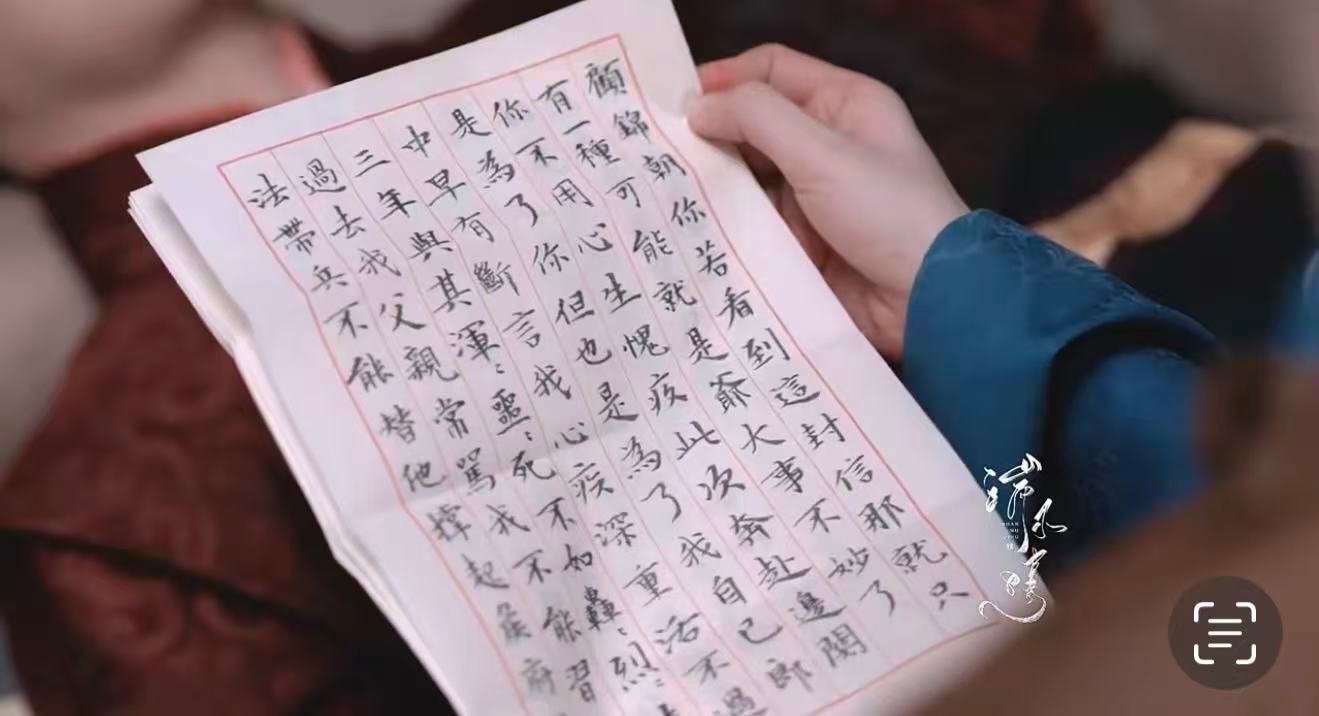 顧錦朝你若看到這封信那就只
有一種可能就是爺大事不妙了
你不用心生愧疚此次奔赴邊關
是為了你但也是為了我自己郎
中早有斷言我心疾深重活不過
三年與其渾〻噩〻死不如轟〻烈〻
過去我父親常罵我不能習
法帶兵不能替他撐起侯府